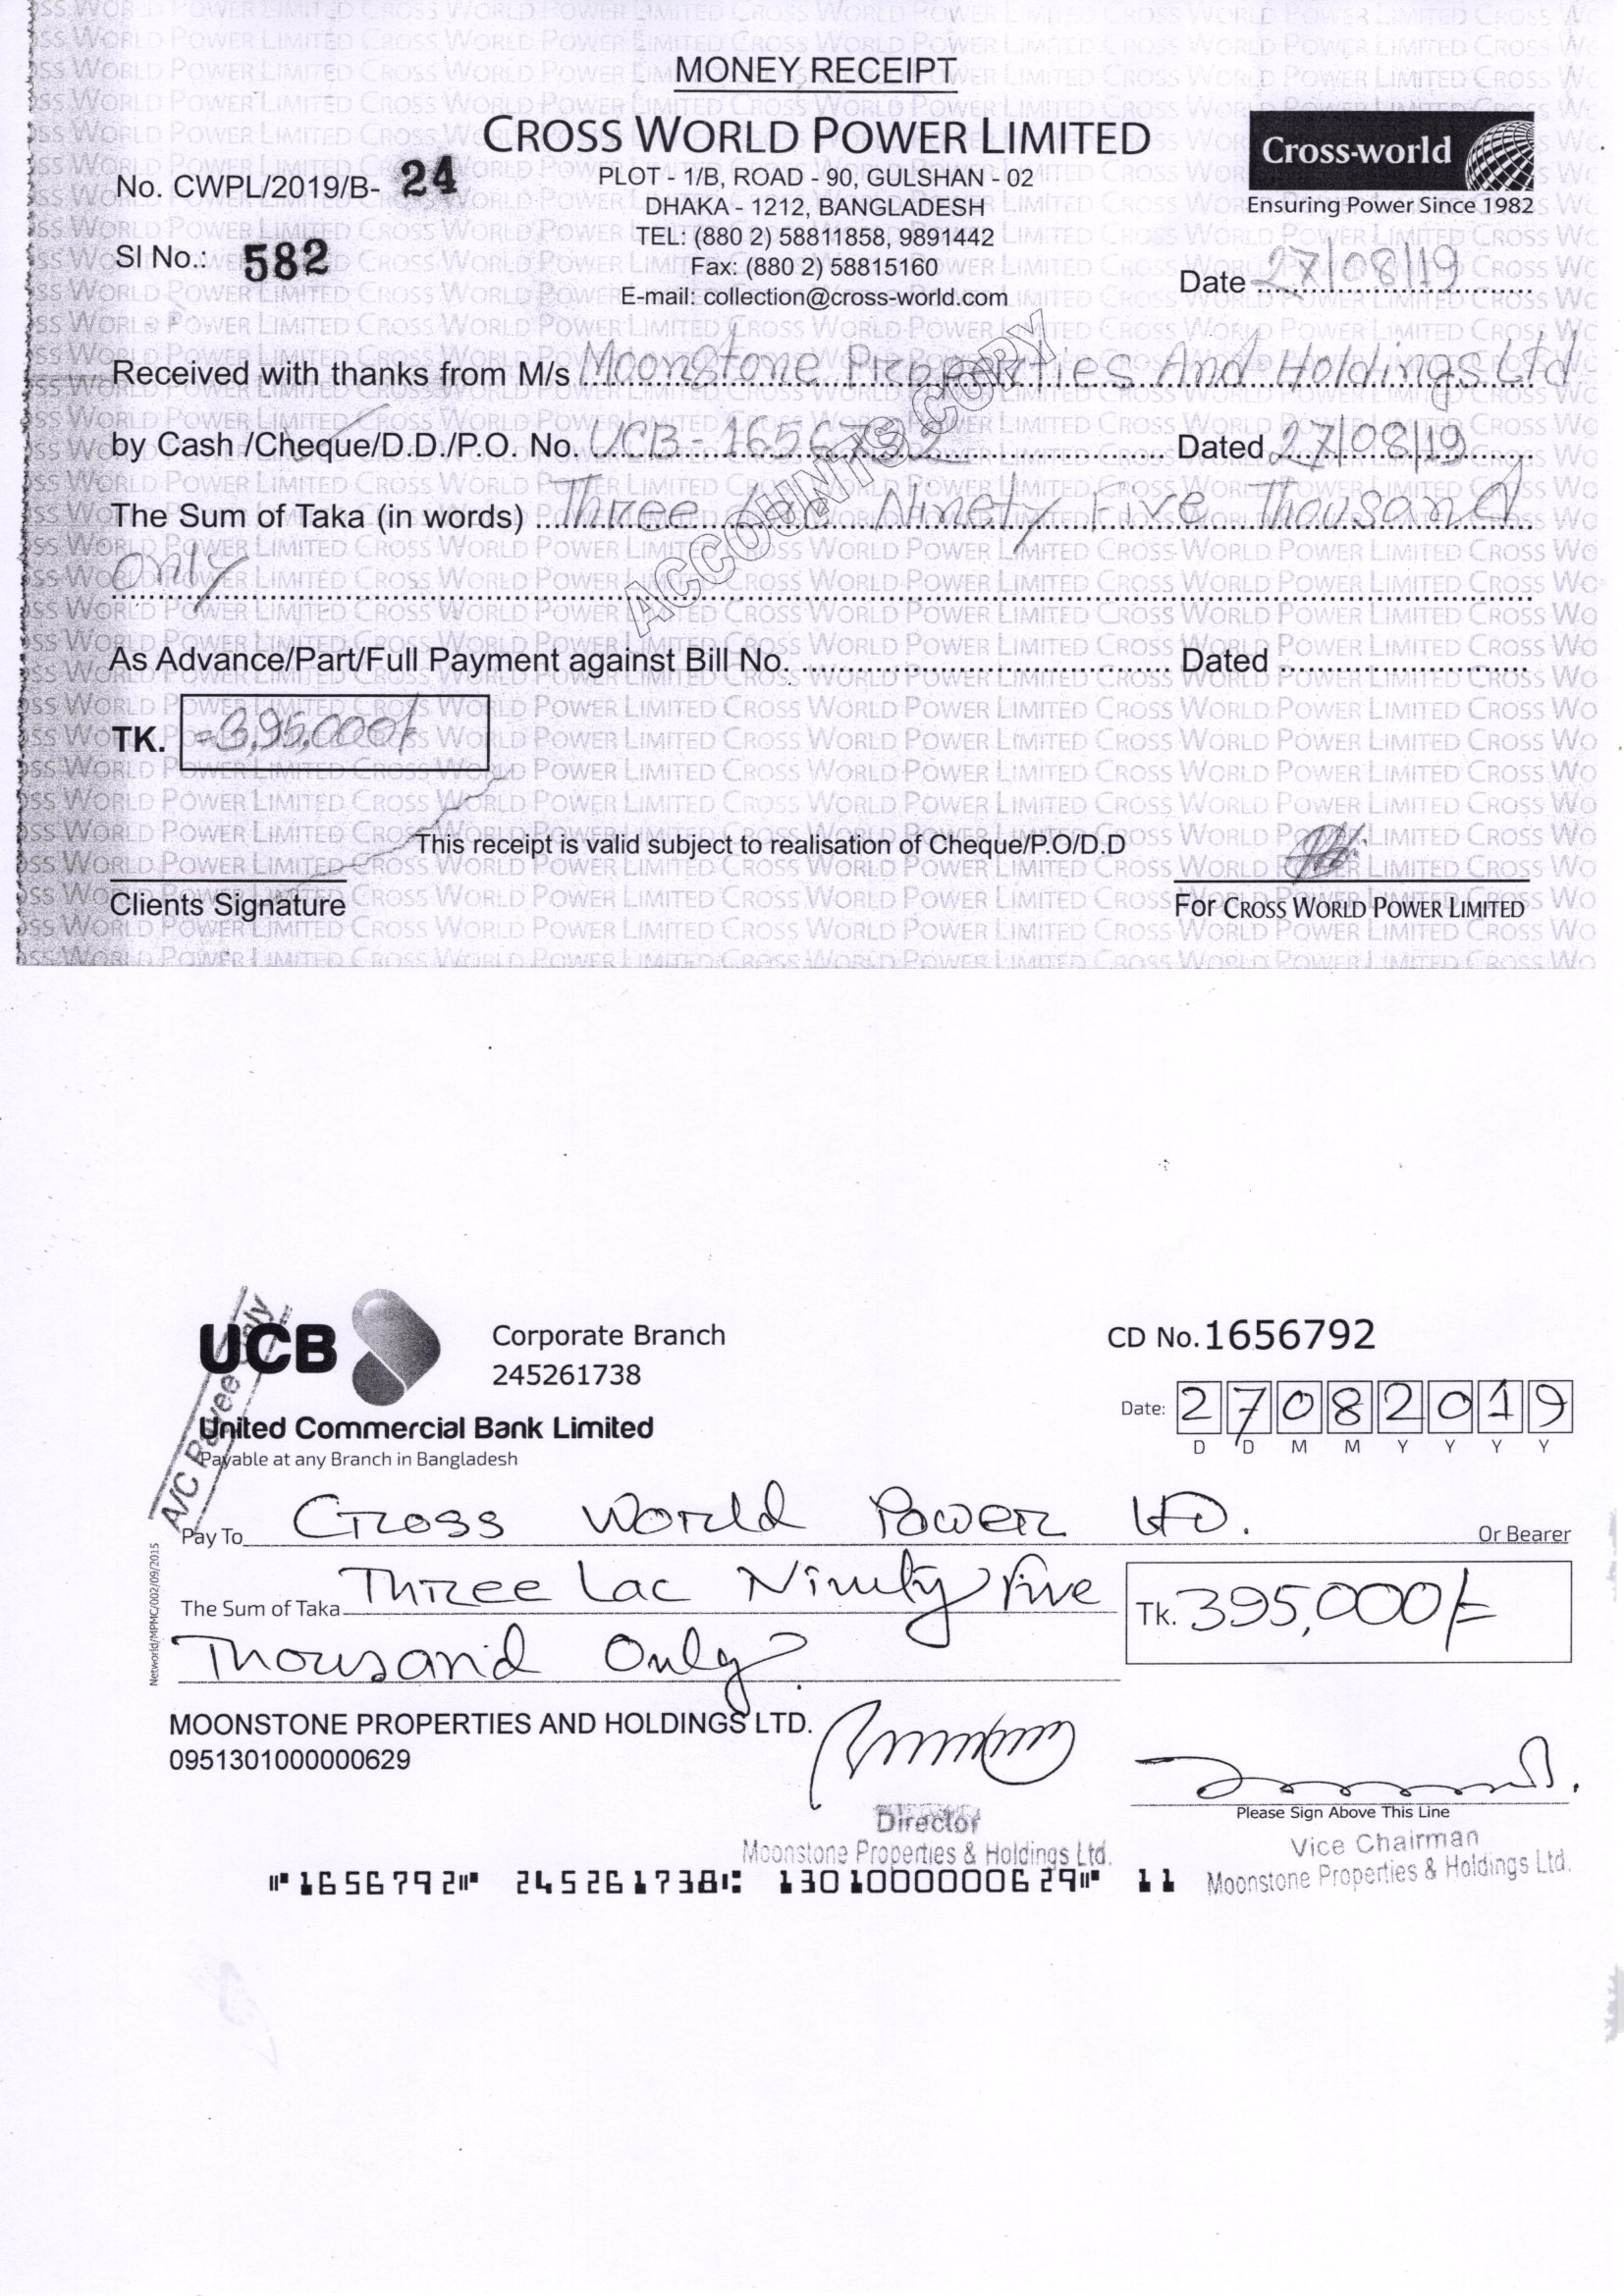 MONEY RECEIPT
CROSS WORLD POWER LIMITED
Cross-world
Ensuring Power Since 1982
No. CWPL/2019/B- 24
PLOT - 1/B, ROAD - 90, GULSHAN - 02
DHAKA - 1212, BANGLADESH
SI No.: 582
TEL: (880 2) 58811858, 9891442
Fax: (880 2) 58815160
E-mail: collection@cross-world.com
Date 27/08/19
Received with thanks from M/s Moonstone Properties And Holdings Ltd
by Cash /Cheque/D.D./P.O. No. UCB-1656792 Dated 27/08/19
The Sum of Taka (in words) Three Ninety Five Thousand
only
ACCOUNTS COPY
As Advance/Part/Full Payment against Bill No. Dated
TK. =3,95,000/
This receipt is valid subject to realisation of Cheque/P.O/D.D
Clients Signature
For CROSS WORLD POWER LIMITED
A/C Payee Only
UCB
Corporate Branch
245261738
CD No. 1656792
United Commercial Bank Limited
Payable at any Branch in Bangladesh
Date: 27082019
D D M M Y Y Y Y
Pay To Cross World Power LTD. Or Bearer
The Sum of Taka Three Lac Ninety Five
Thousand Only
Tk. 395,000/=
Networld/MPMC/002/09/2015
MOONSTONE PROPERTIES AND HOLDINGS LTD.
0951301000000629
Please Sign Above This Line
Director
Moonstone Properties & Holdings Ltd.
Vice Chairman
Moonstone Properties & Holdings Ltd.
⑈1656792⑈ 245261738⑆ 1301000000629⑈ 11